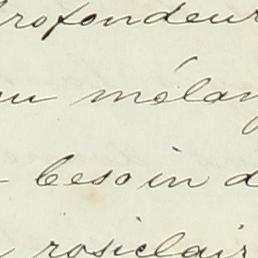 profondeur
au mélang
besoin d
rosiclair